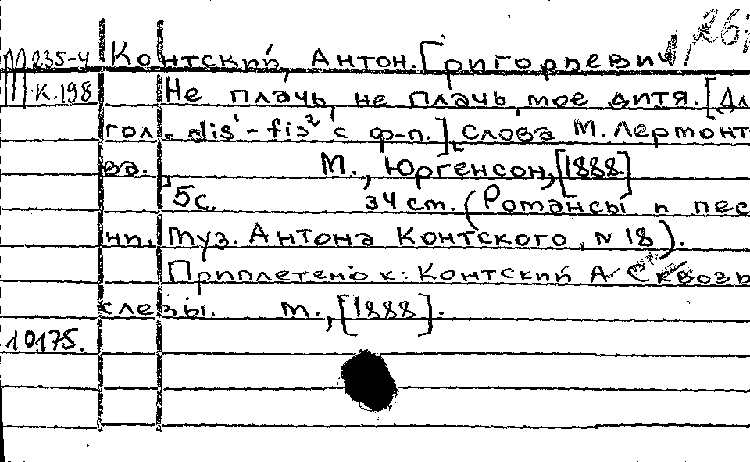 П 235-4 Контский, Антон. [Григорьевич]
К.198 Не плачь, не плачь, мое дитя. [Дл
гол. dis¹-fis² с ф-п.] Слова М. Лермонт
ва. М., Юргенсон, [1888]
5с. 34 см. (Романсы и пес
ни. Муз. Антона Контского, N 18).
Приплетено к: Контский А. Сквозь
слезы. М., [1888].
10175.